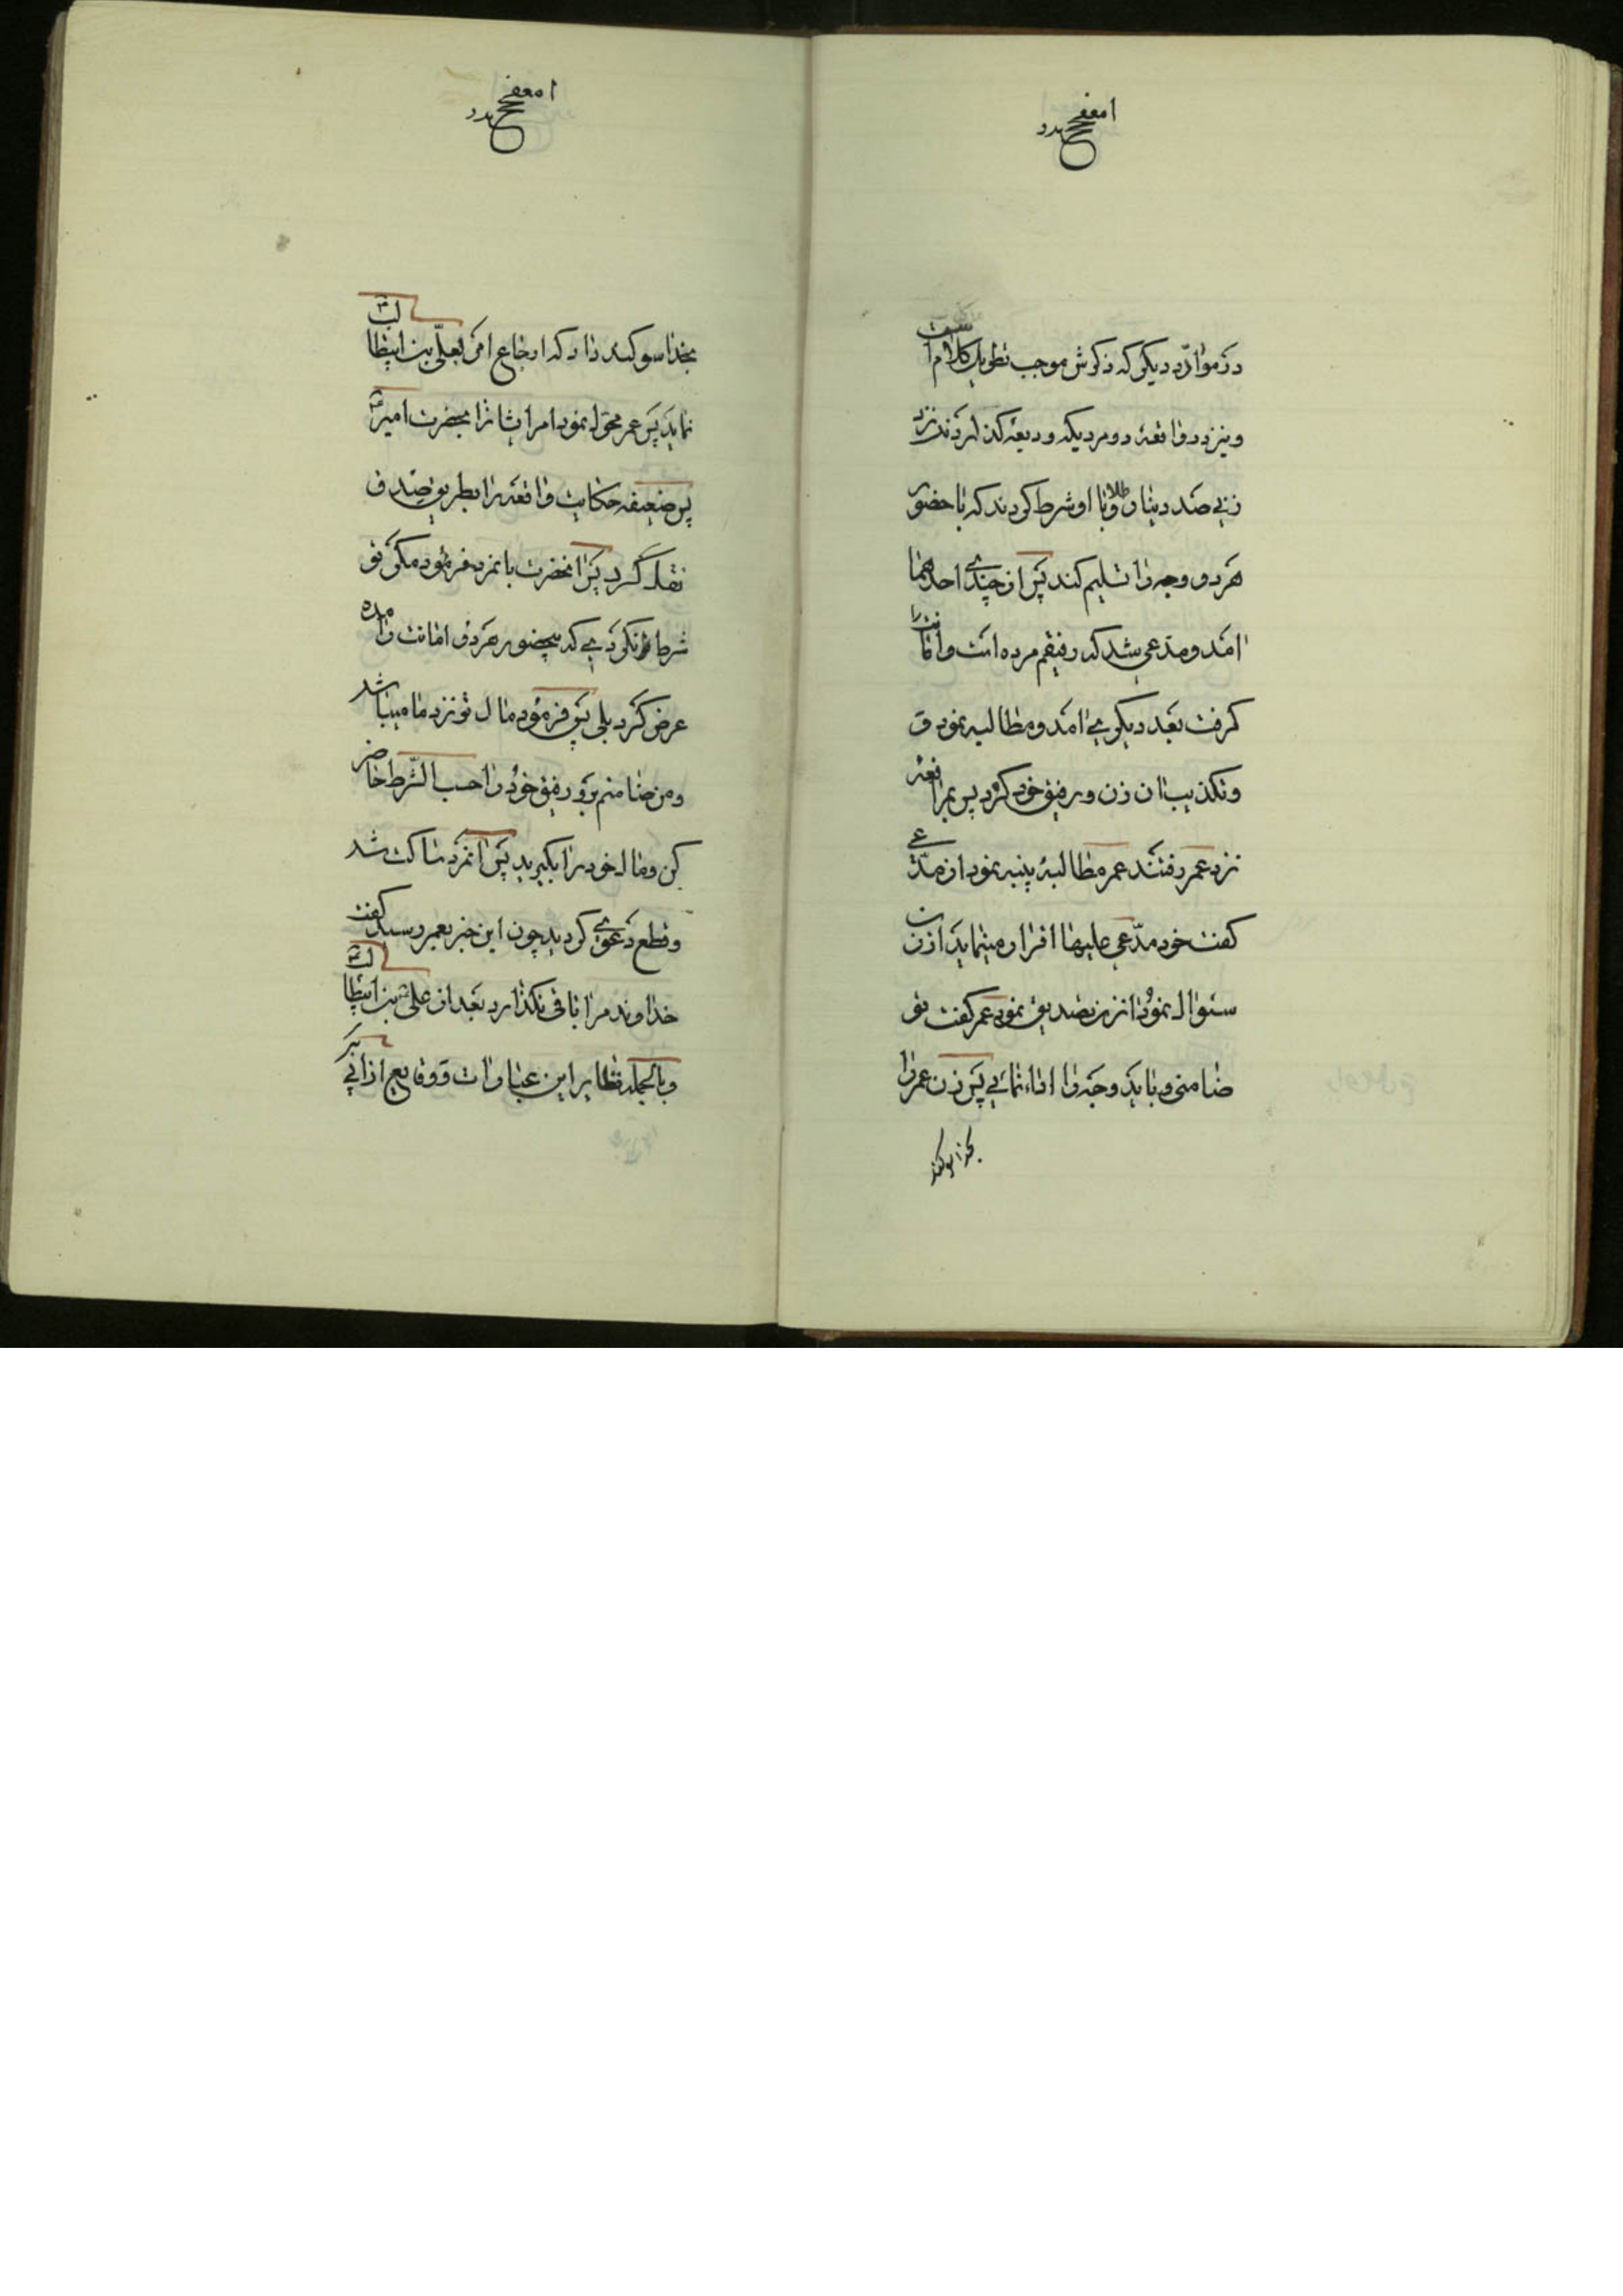 در موارد دیکر که ذکرش موجب تطویل کلام است
و نیز در واقعهٔ دو مردیکه ودیعه کذاردند نزد
زنی صد دینار طلا و با او شرط کردند که با حضور
هر دو وجه را تسلیم کند پس از چندی احدهما
امد و مدعی شد که رفیقم مرده است و امانت را
کرفت بعد دیکری امد و مطالبه نمود و
و تکذیب ان زن و رفیق خود کرد پس بمرافعه
نزد عمر رفتند عمر مطالبهٔ بینه نمود از مدّعی
کفت خود مدّعی علیها اقرار مینماید از زن
سئوال نمود انزن تصدیق نمود عمر کفت تو
ضامنی و باید وجه را اداء نمائی پس زن عمر را
بخدا سوکند
بخدا سوکند داد که ارجاع امر بعلّی بن ابیطالب
نماید پس عمر محول نمود امر ایشانرا بحضرت امیر
پس ضعیفه حکایت واقعه را بطریق صدق
نقل کرد پس انحضرت بانمرد فرمود مکر تو
شرط نکردی که بحضور هر دو امانت را بده
عرض کرد بلی پس فرمود مال تو نزد ما میباشد
و من ضامنم برو رفیق خود را حسب الشّرط حاضر
کن و مال خود را بکیرید پس انمرد ساکت شد
و قطع دعوی کردید چون این خبر بعمر رسید کفت
خداوند مرا باقی نکذارد بعد از علی بن ابیطالب
و بالجمله نظایر این عبارات و وقایع از ابی بکر